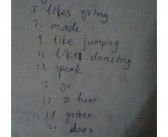 5. likes going
7. made
9. like jumping
11. like dancing
13. speak
15. go
17. to hear
19. gotten
21. does